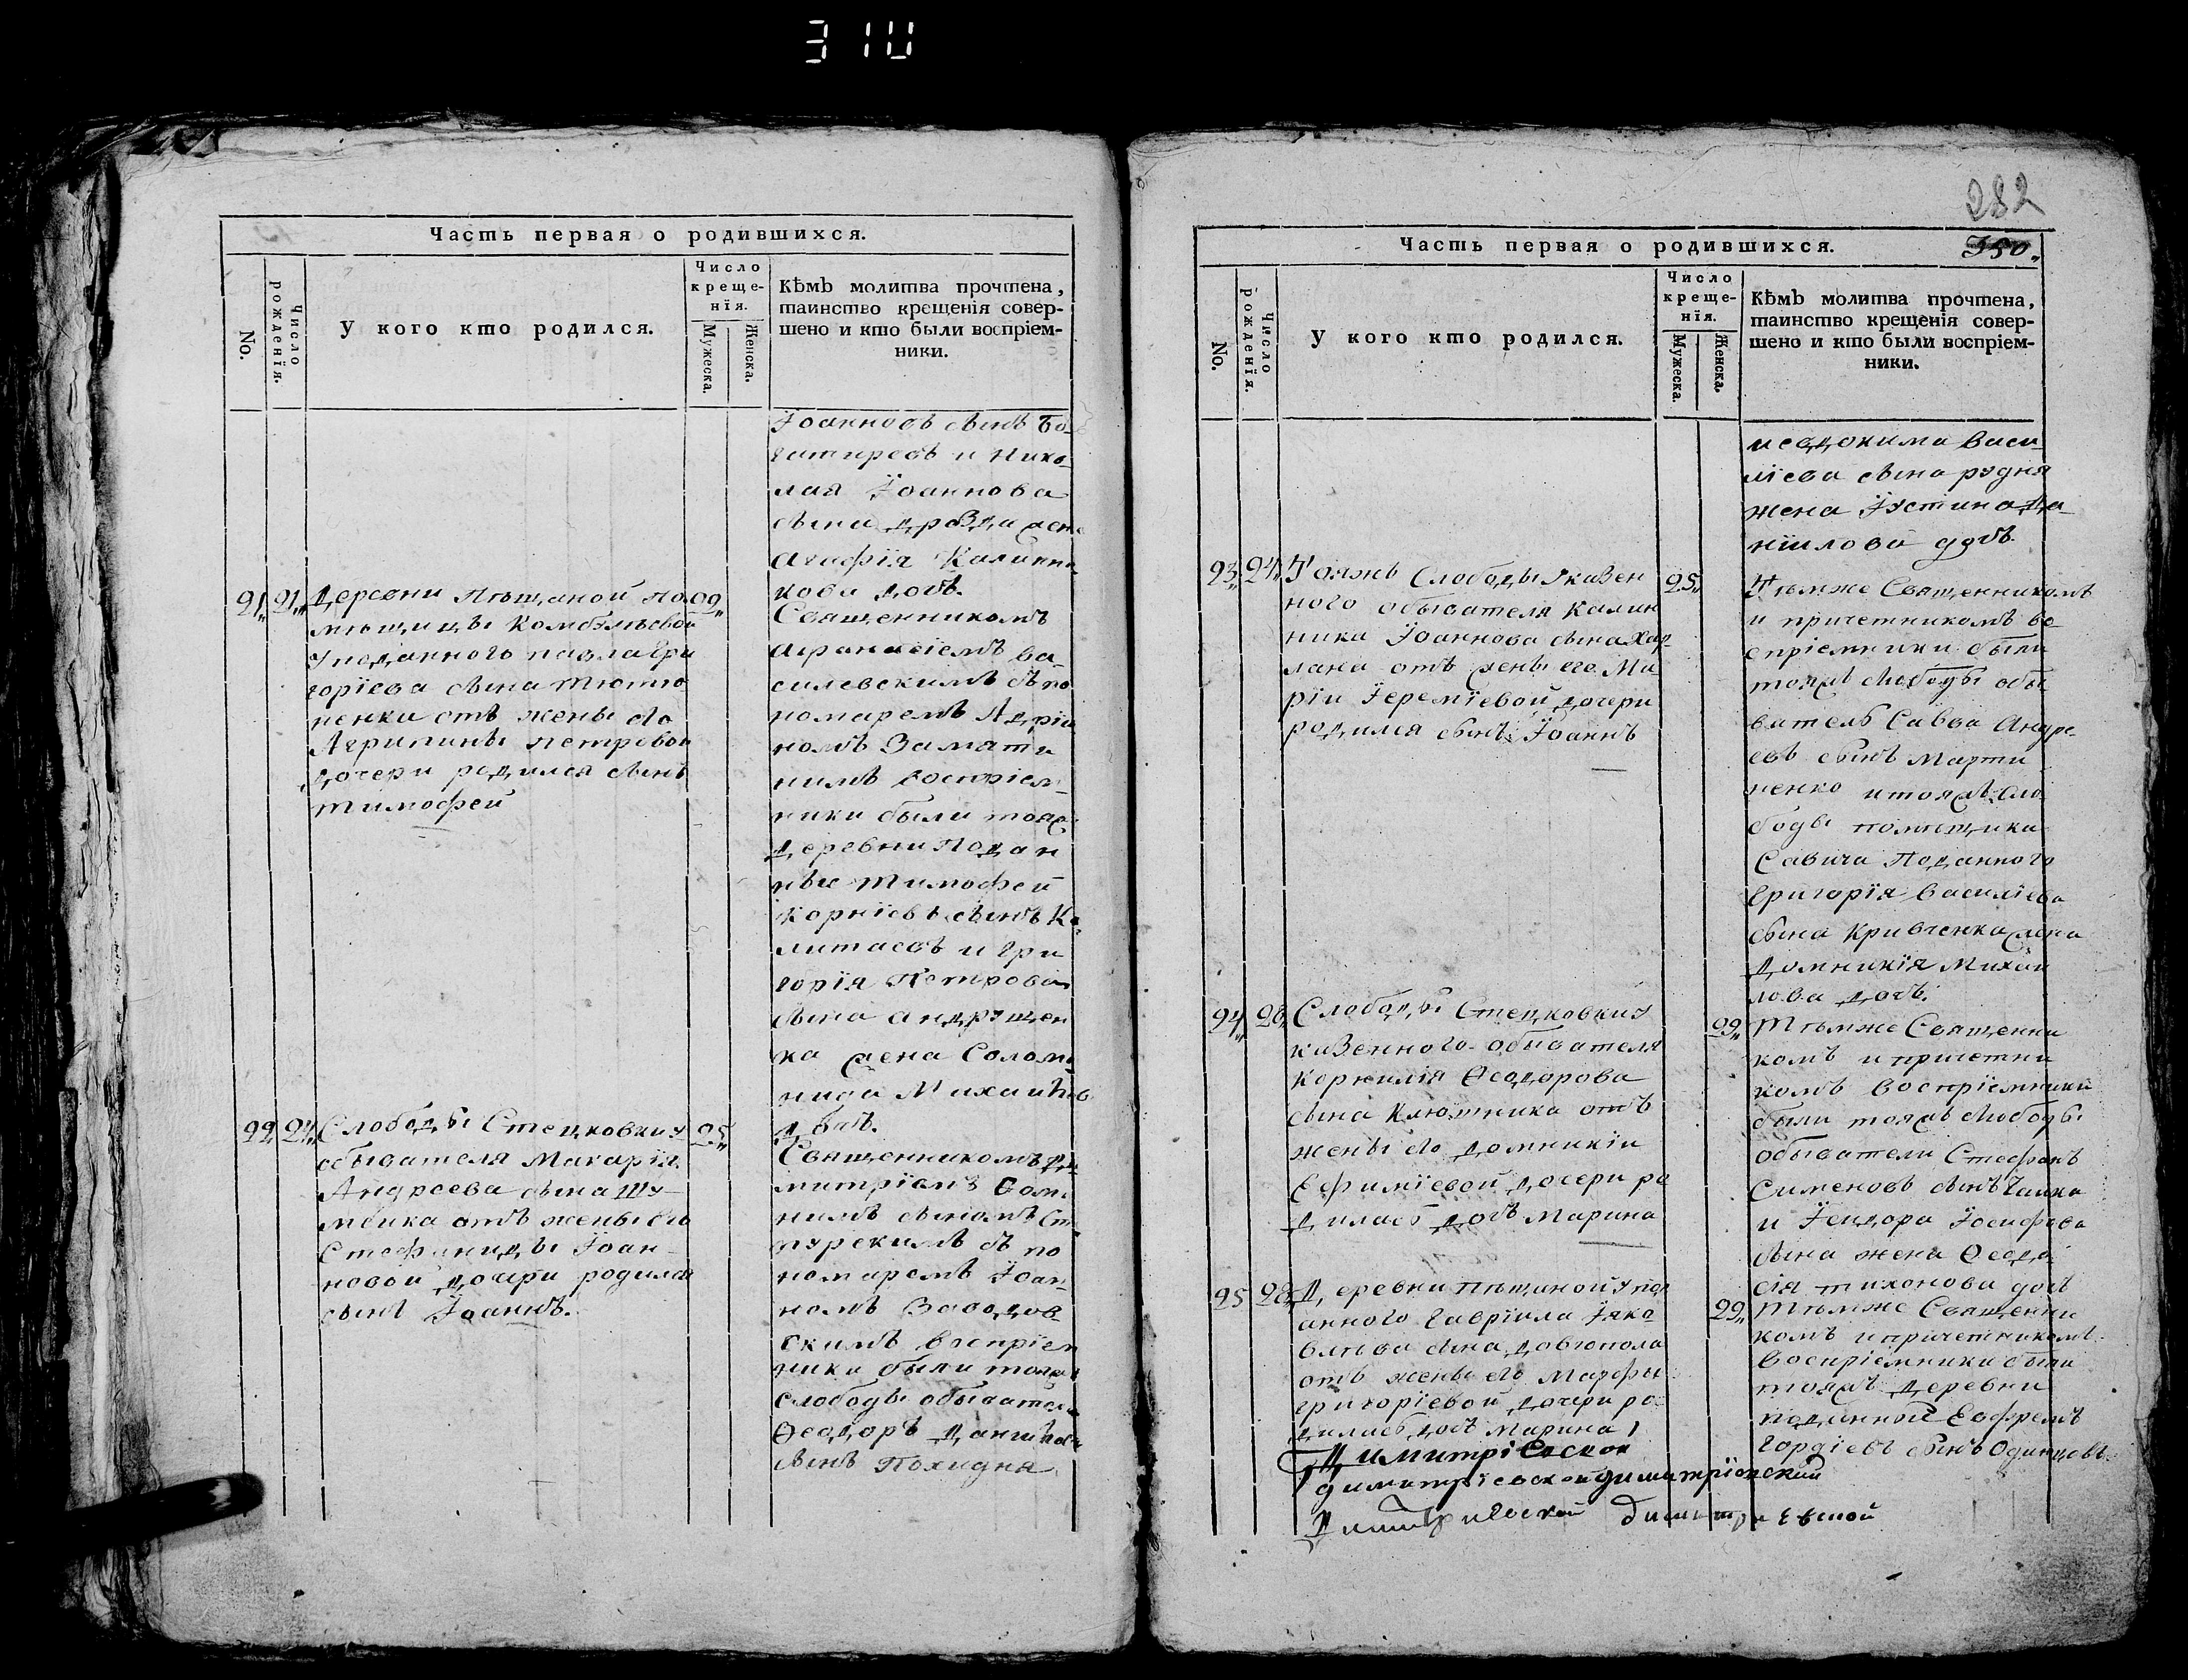 310
Часть первая о родившихся.
No.
Число рожденїя.
У кого кто родился.
Число
креще-
нїя.
Мужеска.
Женска.
Кѣмъ молитва прочтена,
таинство крещенїя совер-
шено и кто были воспрїем-
ники.
Іоанновъ сынъ Бо-
гатиревъ и Нико-
лая Іоаннова
сына Дрозда жена
Агафїя Калинни-
кова дочь.
21 21 Деревни Пѣщаной по- 22
мѣщицы Комбурлѣевой
у подданного Павла Гри
горїева сына Тютю
ненки отъ жены его
Агрипины Петровой
дочери родился сынъ
Тимофей
Священникомъ
Афанасїемъ Ва-
силевскимъ съ по
номаремъ Адрїа
номъ Замяти
нимъ воспрїем-
ники были тояжъ
деревни подан
ные Тимофей
Корнїевъ сынъ
и Гри
горїя Петрова
сына Андрущен
ка жена Соломо
нида Михайлова
дочь.
22 24 Слободы Стецковки у 25
обывателя Макарїя
Андреева сына Шу-
мейка отъ жены его
Стефаниды Іоан-
новой дочери родился
сынъ Іоаннъ.
Священникомъ Ди
митрїемъ Фоми
нимъ сыномъ
съ по
номаремъ Іоан
номъ
скимъ воспрїем
ники были тояжъ
слободы обыватель
Ѳеодоръ Данииловъ
сынъ Полидня
282
150
Часть первая о родившихся.
No.
Число рожденїя.
У кого кто родился.
Число
креще-
нїя.
Мужеска.
Женска.
Кѣмъ молитва прочтена,
таинство крещенїя совер-
шено и кто были воспрїем-
ники.
и Евдокима Васи-
лїева сына Рудня
жена Іустина Да-
нїилова дочь.
23 24 Тояжъ слободы у казен 25
ного обывателя Калин
ника Іоаннова сына Хар-
лана отъ жены его Ма-
рїи Іеремїевой дочери
родился сынъ Іоаннъ
Тѣмже священникомъ
и причетникомъ во
спрїемники были
тояжъ слободы обы
ватель Савва Андре-
евъ сынъ Марти
ненко и тояжъ сло
боды помѣщика
Савича поданного
Григорїя Василїева
сына Кривченка жена
Домникїя Михай
лова дочь.
24 28 Слободы Стецковки у 29
казенного обывателя
Корнилїя Ѳеодорова
сына Ключника отъ
жены его Домникїи
Ефимїевой дочери ро
дилась дочь Марина
Тѣмже священни
комъ и причетни
комъ воспрїемники
были тояжъ слободы
обыватели Стефанъ
Сименовъ сынъ Чайка
и Іосифова
сына жена Ѳеодо-
сїя Тихонова дочь
25 28 Деревни Пѣщаной у под 29
анного Гаврїила Іако-
влева сына Довгопола
отъ жены его Марфы
Григорїевой дочери ро-
дилась дочь Марина
Тѣмже священни
комъ и причетникомъ
воспрїемники были
тояжъ деревни
поданной Ефремъ
Гордїевъ сынъ Одинцовъ
Димитрїевской
димитрїевской димитрїевский
Димитриевской димитриевской